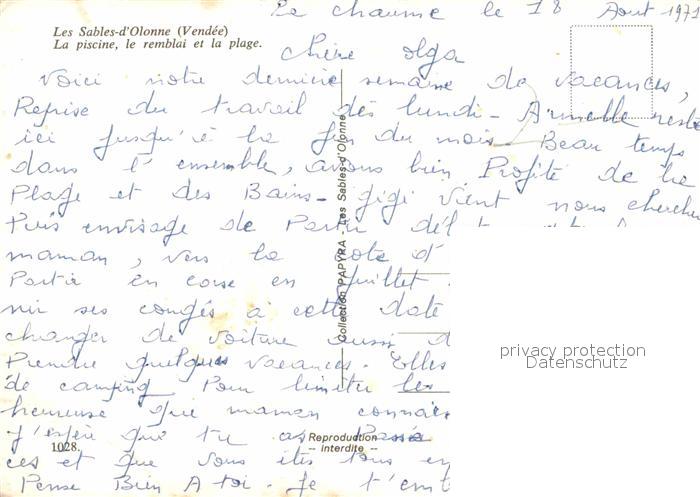 La chaume le 18 Aout 1971
Les Sables-d'Olonne (Vendée)
La piscine, le remblai et la plage.
Chère Olga
Voici notre dernière semaine de vacances,
Reprise du travail dès lundi - Armelle reste
ici jusqu'à la fin du mois - Beau temps
dans l'ensemble, avons bien Profité de la
Plage et des Bains - gigi vient nous chercher
Puis envisage de Partir
maman, vers la cote d'
Partir en corse en juillet
nir ses congés à cette date
changer de voiture aussi d
Prendre quelques vacances. Elles
de camping Pour limiter les
heureuse que maman connais
J'espère que tu as Passé
ces et que vous êtes tous en
Pense Bien A toi. Je t'em
Collection PAPYRA - Les Sables-d'Olonne
1028.
Reproduction
-- interdite --
privacy protection
Datenschutz